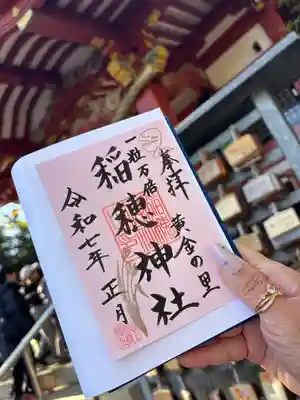 奉拝
黄金の里
一粒万倍
稲穂神社
令和七年正月